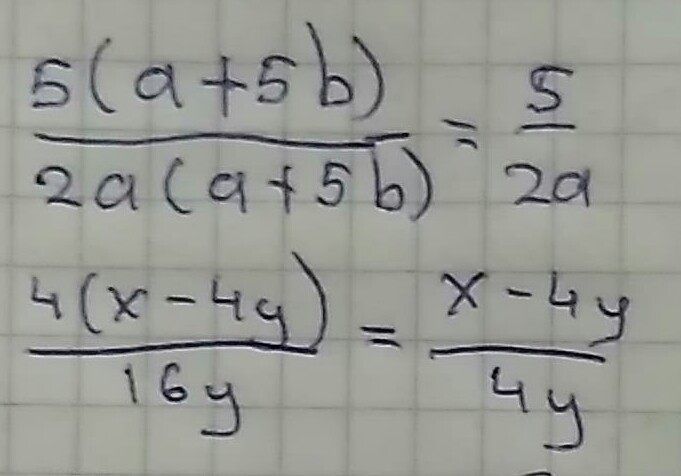 5(a+5b)/2a(a+5b) = 5/2a
4(x-4y)/16y = x-4y/4y